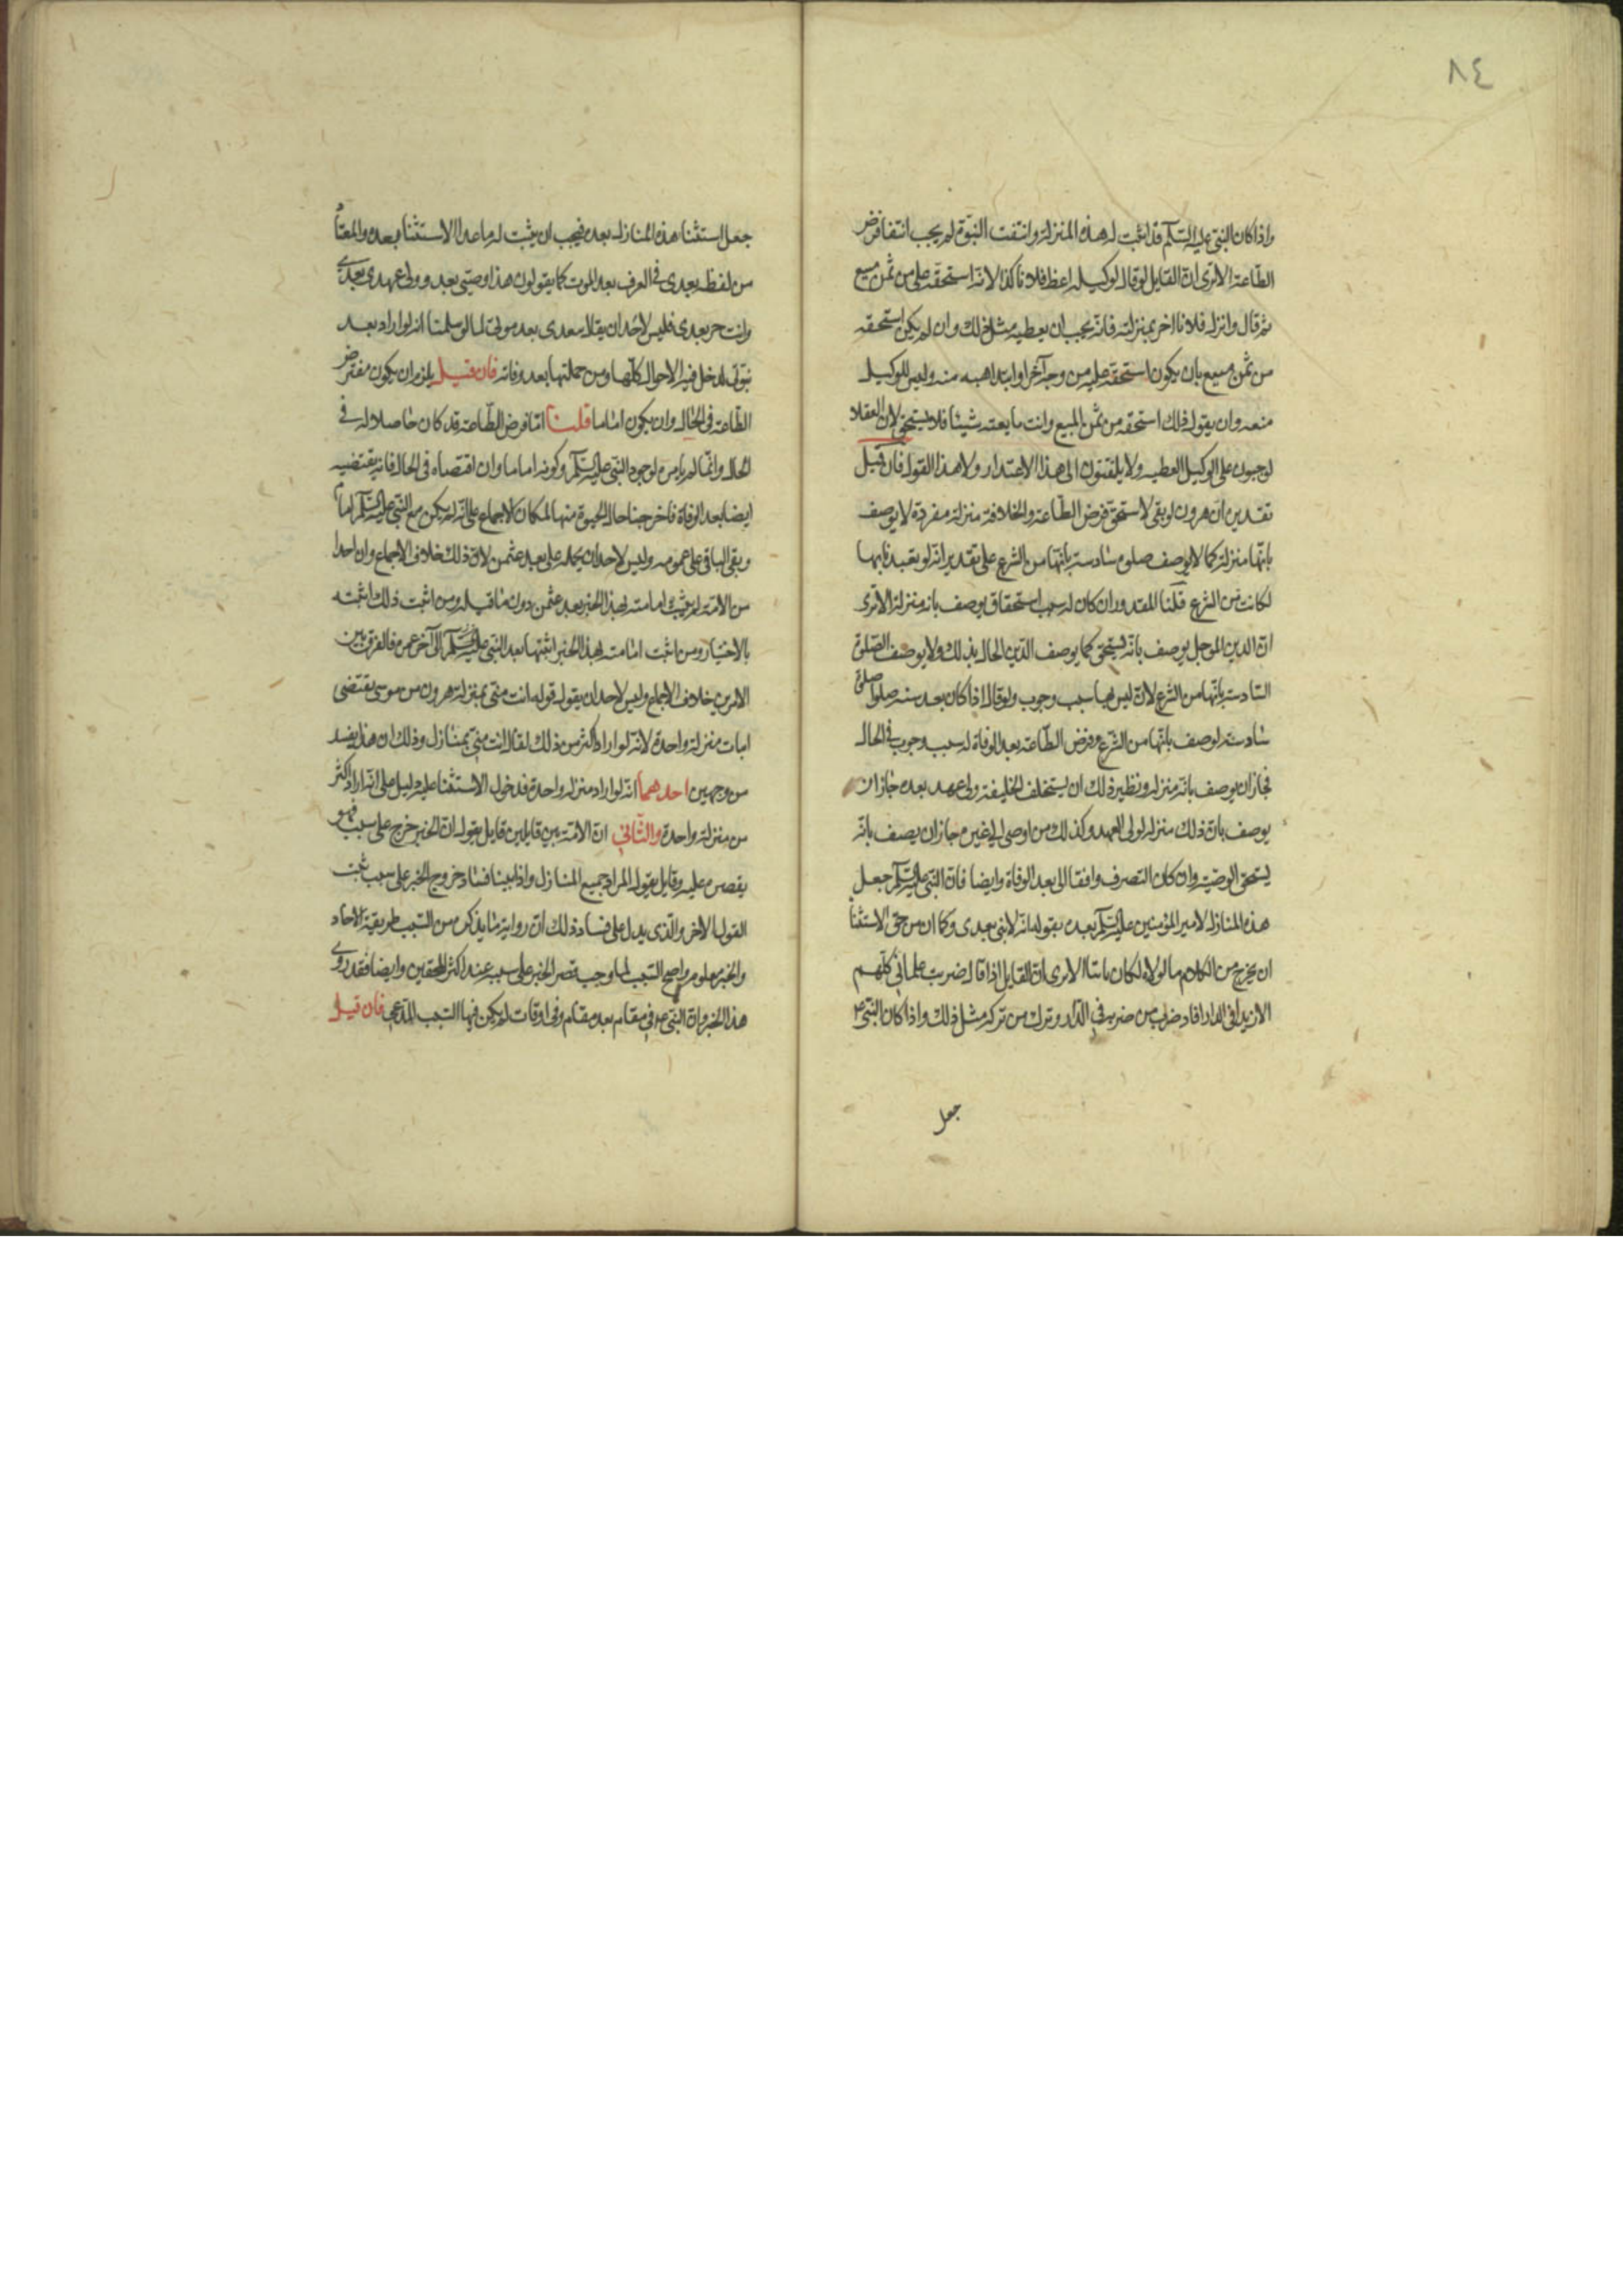 ٨٤
واذا كان النبى عليه السلم قد اثبت له هذه المنزلة وانتفت النبوة لم يجب انتفا فرض
الطاعة الا ترى ان القايل لو قال لوكيله اعط فلانا كذا لانه استحقه على من ثمن مبيع
ثم قال وانزل فلانا اخر بمنزلته فانه يجب ان يعطيه مثل ذلك وان لم يكن استحقه
من ثمن مبيع بان يكون استحقه عليه من وجه آخر او ابتدا هبه منه وليس للوكيل
منعه وان يقول ذلك استحقه من ثمن المبيع وانت ما بعته شيئا فلا يستحق لان العقلا
يوجبون على الوكيل العطيه ولا يلتفتون الى هذا الاعتذار ولا هذا القول فان قيل
تقديره ان هرون لو بقى لاستحق فرض الطاعة والخلافة منزلة مفردة لا يوصف
بانها منزلة كما لا يوصف صلوة سادسة بانها من الشرع على تقدير انه لو تعبد نا بها
لكانت من الشرع قلنا المقدر وان كان له سبب استحقاق يوصف بانه منزلة الا ترى
ان الدين الموجل يوصف بانه يستحق كما يوصف الدين الحال بذلك ولا يوصف الصلوة
السادسة بانها من الشرع لانه ليس لها سبب وجوب ولو قال اذا كان بعد سنة صلوا صلوة
سادسة لوصف بانها من الشرع وفرض الطاعة بعد الوفاة له سبب وجوب فى الحال
فجاز ان يوصف بانه منزله ونظير ذلك ان يستخلف الخليفة ولى عهد بعده جاز ان
يوصف بان ذلك منزله لولى العهد وكذلك من اوصى الى غيره جاز ان يصف بانه
يستحق الوصية وان كان التصرف واقفا الى بعد الوفاة وايضا فان النبى عليه السلم جعل
هذه المنازل لامير المؤمنين عليه السلم بعده بقوله انه لا نبى بعدى وكان من حق الاستثنا
ان يخرج من الكلام ما لولاه لكان ثابتا الا ترى ان القايل اذا قال ضربت غلمانى كلهم
الا زيدا فى الدار افاد ضرب من ضربه فى الدار وترك من تركه مثل ذلك واذا كان النبى ع
جعل
جعل استثنا هذه المنازل بعده فيجب ان يثبت له ما عدا الاستثنا بعده والمعتاد
من لفظ بعدى فى العرف بعد الموت كما يقولون هذا وصيتى بعدى وولى عهدى بعدى
وانت حر بعدى فليس لاحد ان يقول بعدى بعد نبوتى لما لو سلمنا انه لو اراد بعد
نبوتى لدخل فيه الاحوال كلها ومن جملتها بعد وفاته فان قيل يلزم ان يكون مفترض
الطاعة فى الحال وان يكون اماما قلنا اما فرض الطاعة قد كان حاصلا له فى
الحال وانما لم يامره لوجود النبى عليه السلم وكونه اماما وان اقتضاه فى الحال فانه يقتضيه
ايضا بعد الوفاة فاخرجنا حال الحيوة منها لمكان الاجماع على انه لم يكن مع النبى عليه السلم امام
وبقى الباقى على عمومه وليس لاحد ان يحمله على بعد عثمن لان ذلك خلاف الاجماع وان احدا
من الامة لم يثبت امامته لهذا الخبر بعد عثمن دون ما قبله ومن اثبت ذلك اثبته
بالاختيار ومن اثبت امامته لهذا الخبر اثبتها بعد النبى عليه السلم الى آخر عمره فالفرق بين
الامرين خلاف الاجماع وليس لاحد ان يقول قوله انت منى بمنزلة هرون من موسى يقتضى
اثبات منزلة واحدة لانه لو اراد اكثر من ذلك لقال انت منى بمنازل وذلك ان هذا يفسد
من وجهين احدهما انه لو اراد منزله واحدة فدخول الاستثنا عليه دليل على انه اراد اكثر
من منزلة واحدة والثانى ان الامة بين قايلين قايل يقول ان الخبر خرج على سبب فهو
يقصره عليه وقايل يقول المراد جميع المنازل واذا بينا فساد خروج الخبر على سبب ثبت
القول الاخر والذى يدل على فساد ذلك ان رواية ما يذكر من السبب طريقة الاحاد
والخبر معلوم ولو صح السبب لما وجب قصر الخبر على سببه عند اكثر المحققين وايضا فقد روى
هذا الخبر وان النبى ع م فى مقام بعد مقام وفى اوقات لم يكن فيها السبب المدعى فان قيل